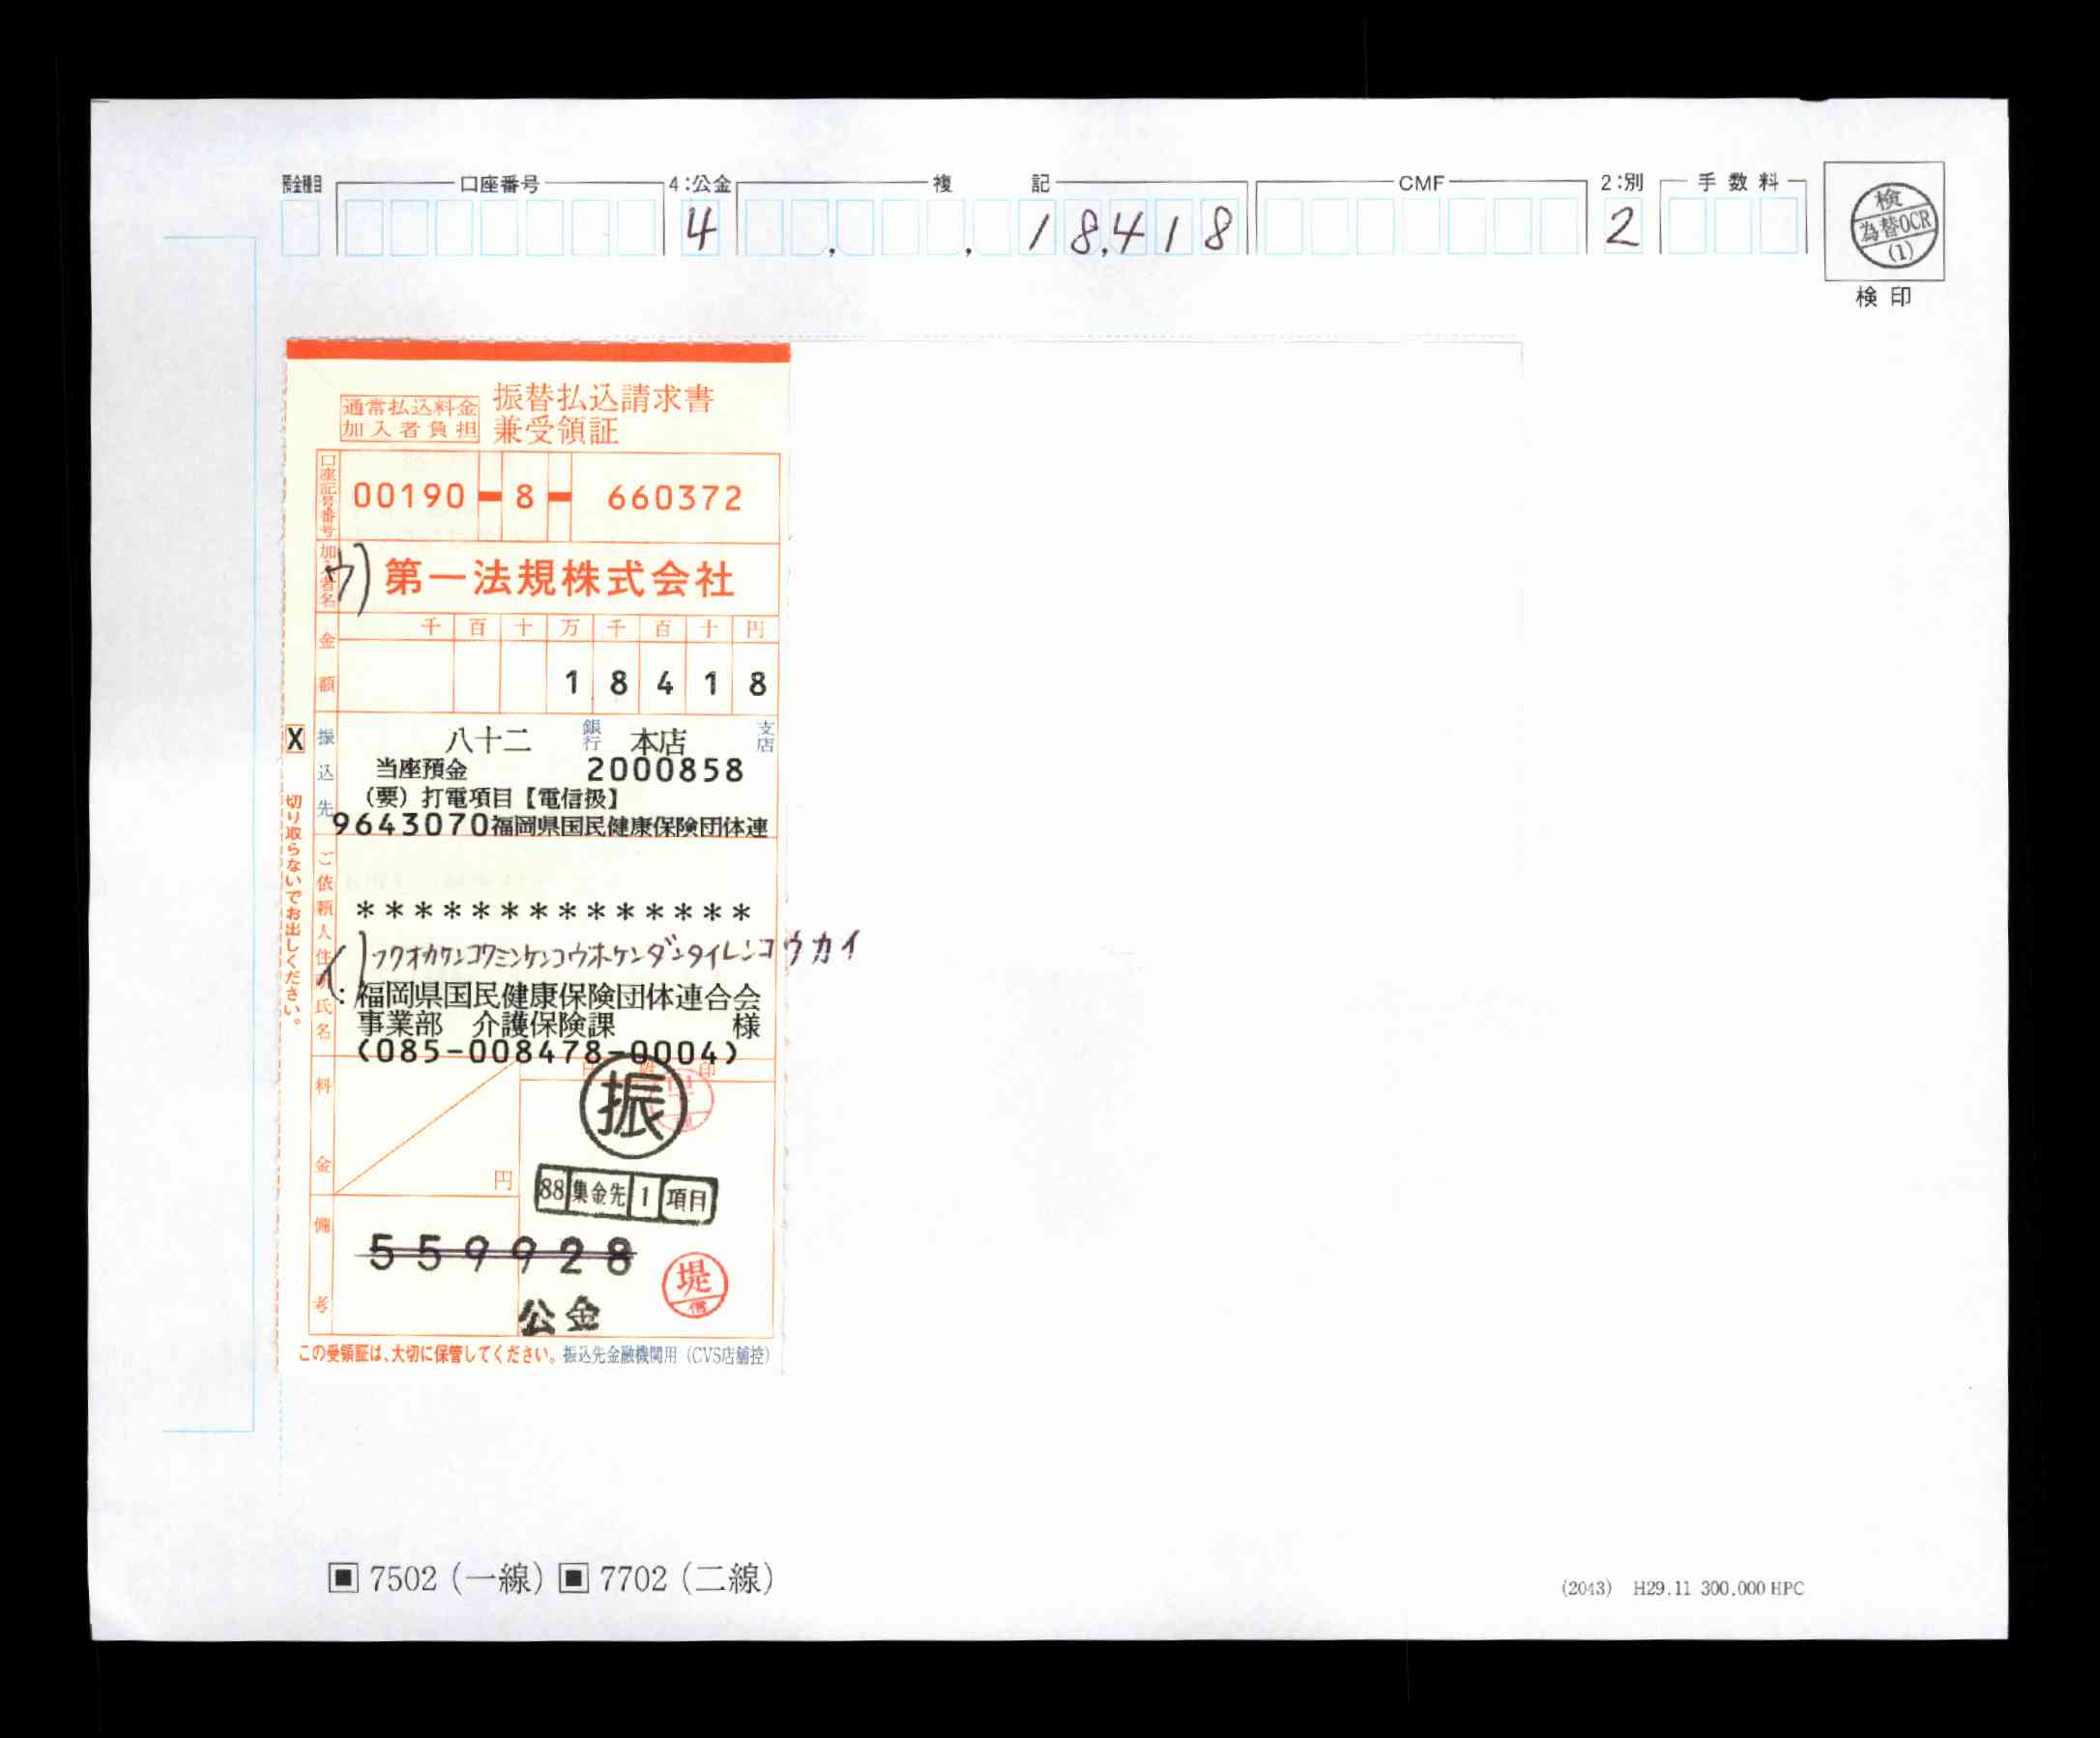 預金種目 口座番号 4:公金 複 記 CMF 2:別 手数料
4 18,418 2
検
為替OCR
(1)
検印
通常払込料金
加入者負担
振替払込請求書
兼受領証
口座記号番号 00190-8-660372
加入者名 ウ) 第一法規株式会社
金額 千 百 十 万 千 百 十 円
1 8 4 1 8
X 振込先 八十二 銀行 本店 支店
当座預金 2000858
(要)打電項目【電信扱】
9643070福岡県国民健康保険団体連
切り取らないでお出しください。
ご依頼人住所氏名
**************
イ)フクオカケンコクミンケンコウホケンダンタイレンコウカイ
:福岡県国民健康保険団体連合会
事業部 介護保険課 様
(085-008478-0004)
料金 円
印
振
88 集金先 1 項目
備考
559928
堤
信
公金
この受領証は、大切に保管してください。 振込先金融機関用(CVS店舗控)
▣ 7502(一線) ▣ 7702(二線)
(2043) H29.11 300,000 HPC